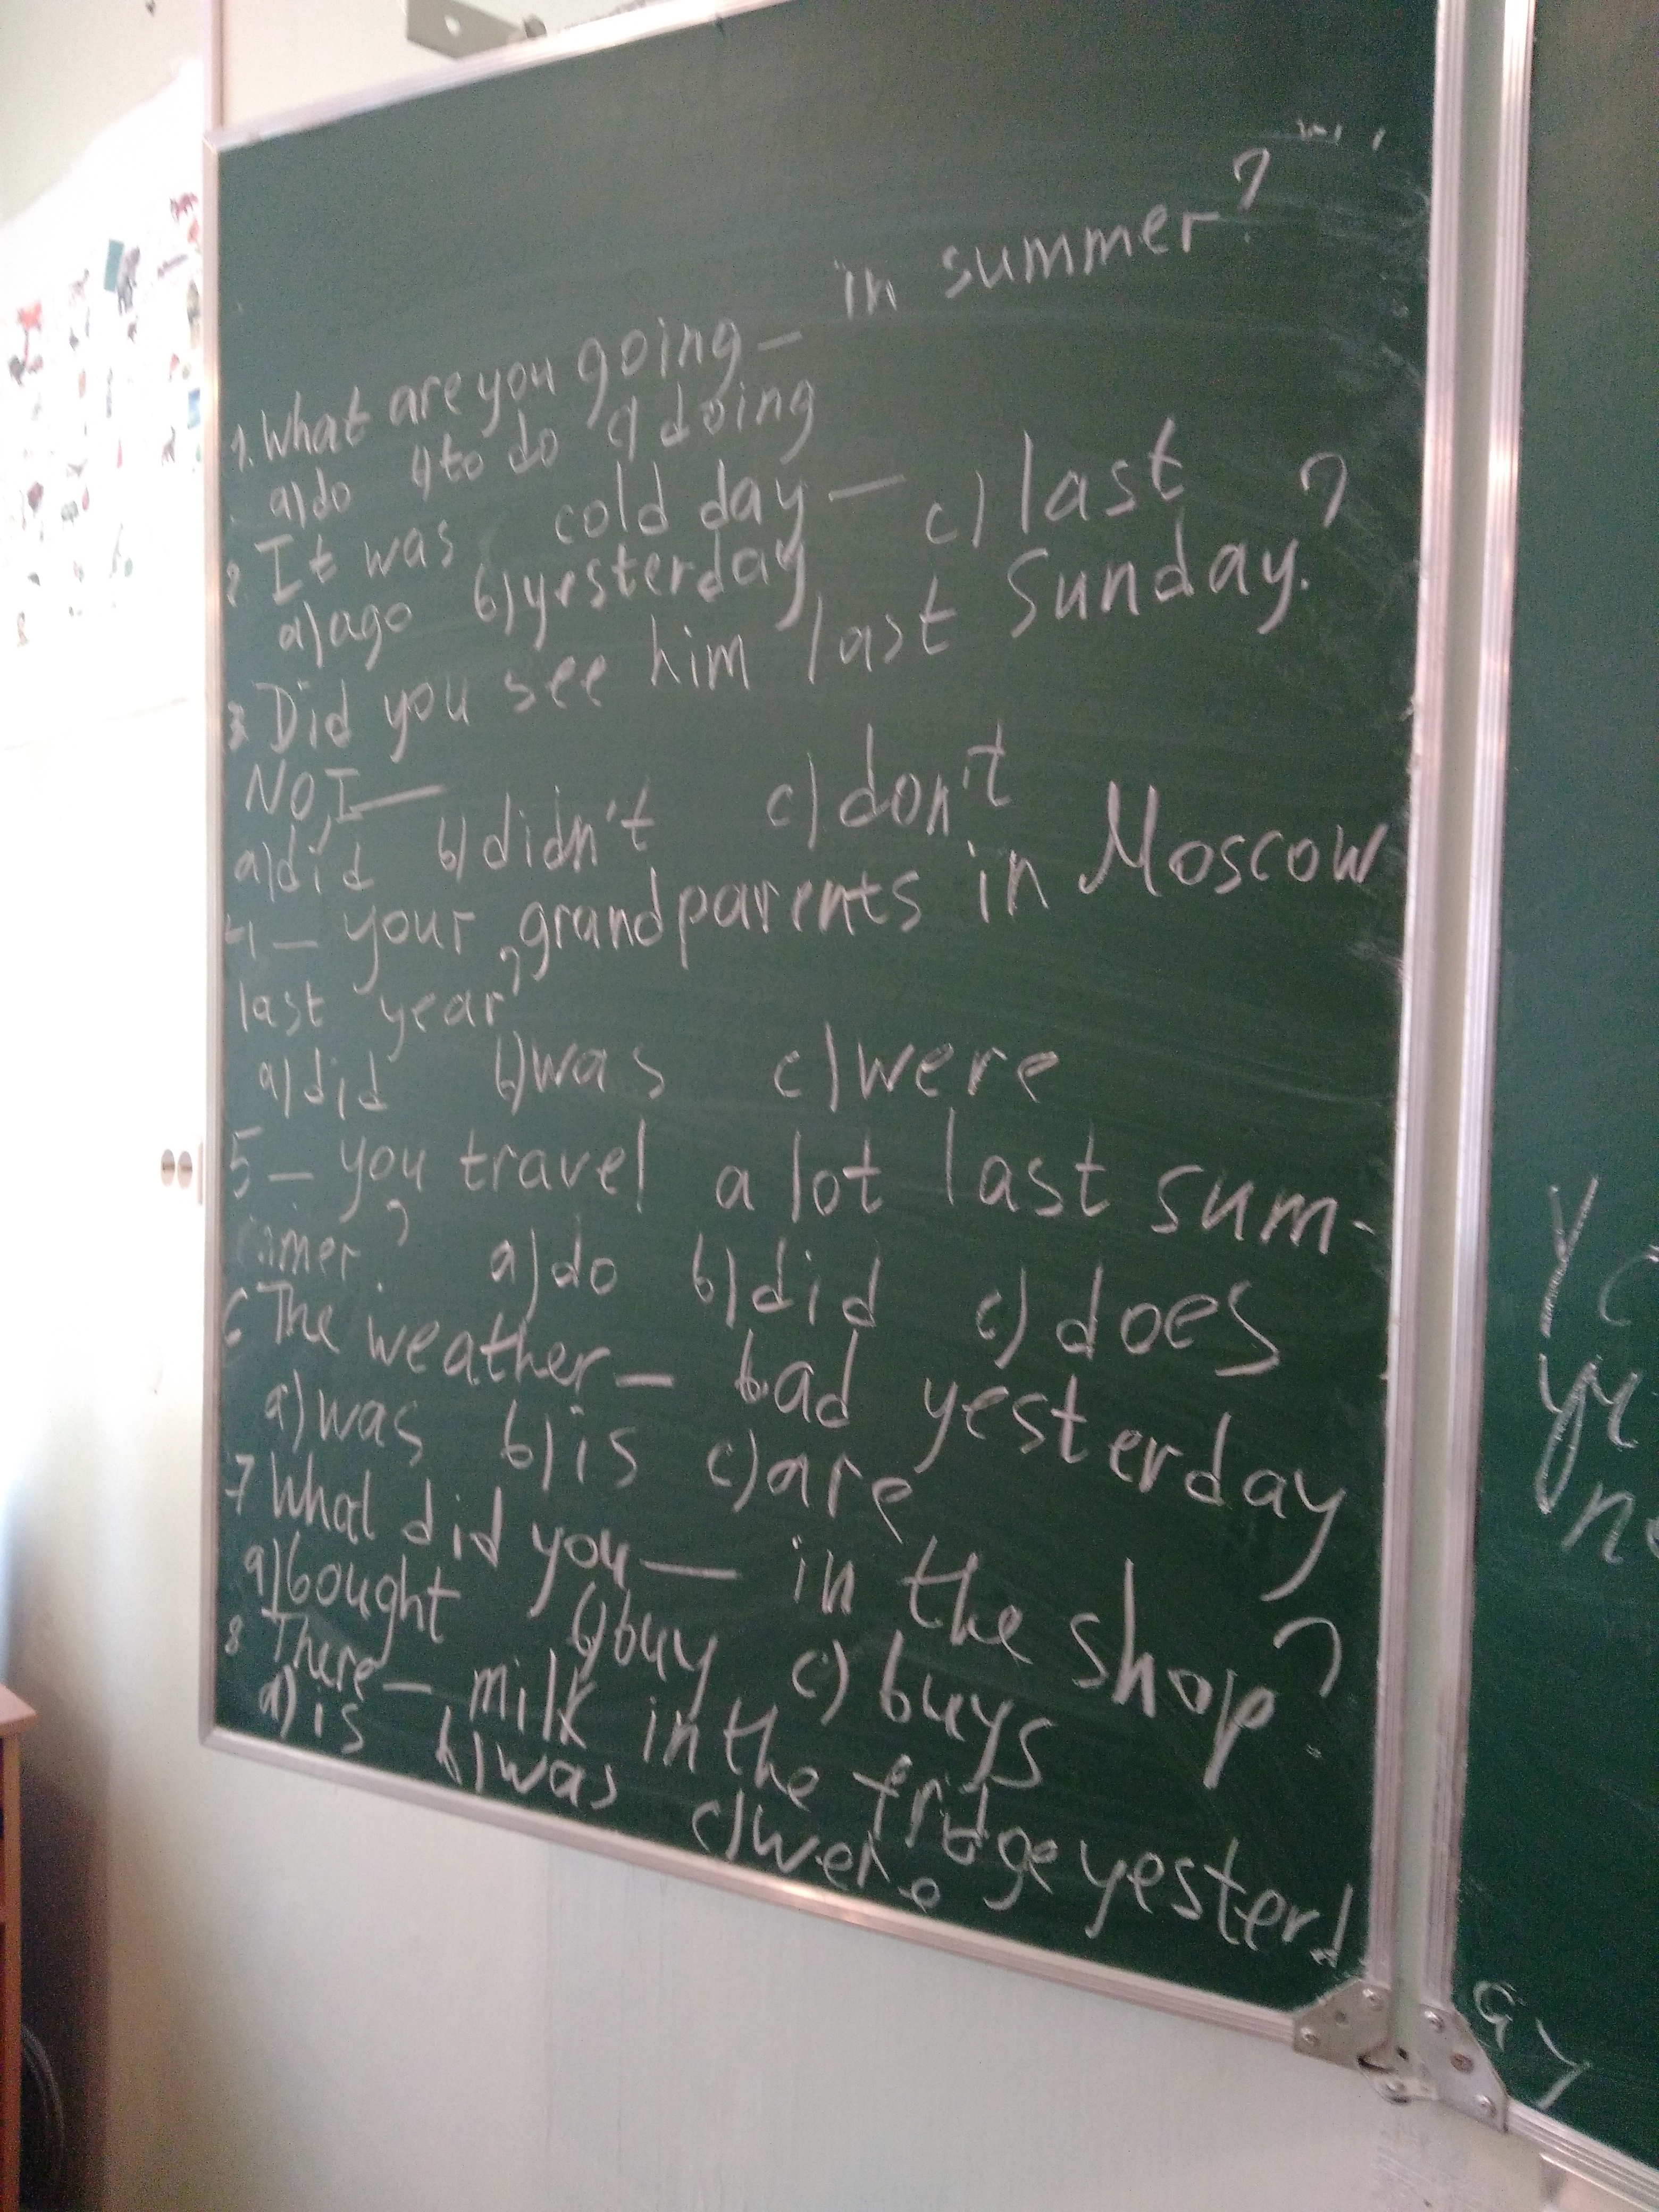 1. What are you going — in summer?
a) do b) to do c) doing
2 It was cold day —
a) ago b) yesterday c) last
3 Did you see him last Sunday.?
NO, I —
a) did b) didn't c) don't
4 — your grandparents in Moscow
last year?
a) did b) was c) were
5 — you travel a lot last sum-
mer? a) do b) did c) does
6 The weather — bad yesterday
a) was b) is c) are
7 What did you — in the shop?
a) bought b) buy c) buys
8 There — milk in the fridge yesterd
a) is b) was c) were